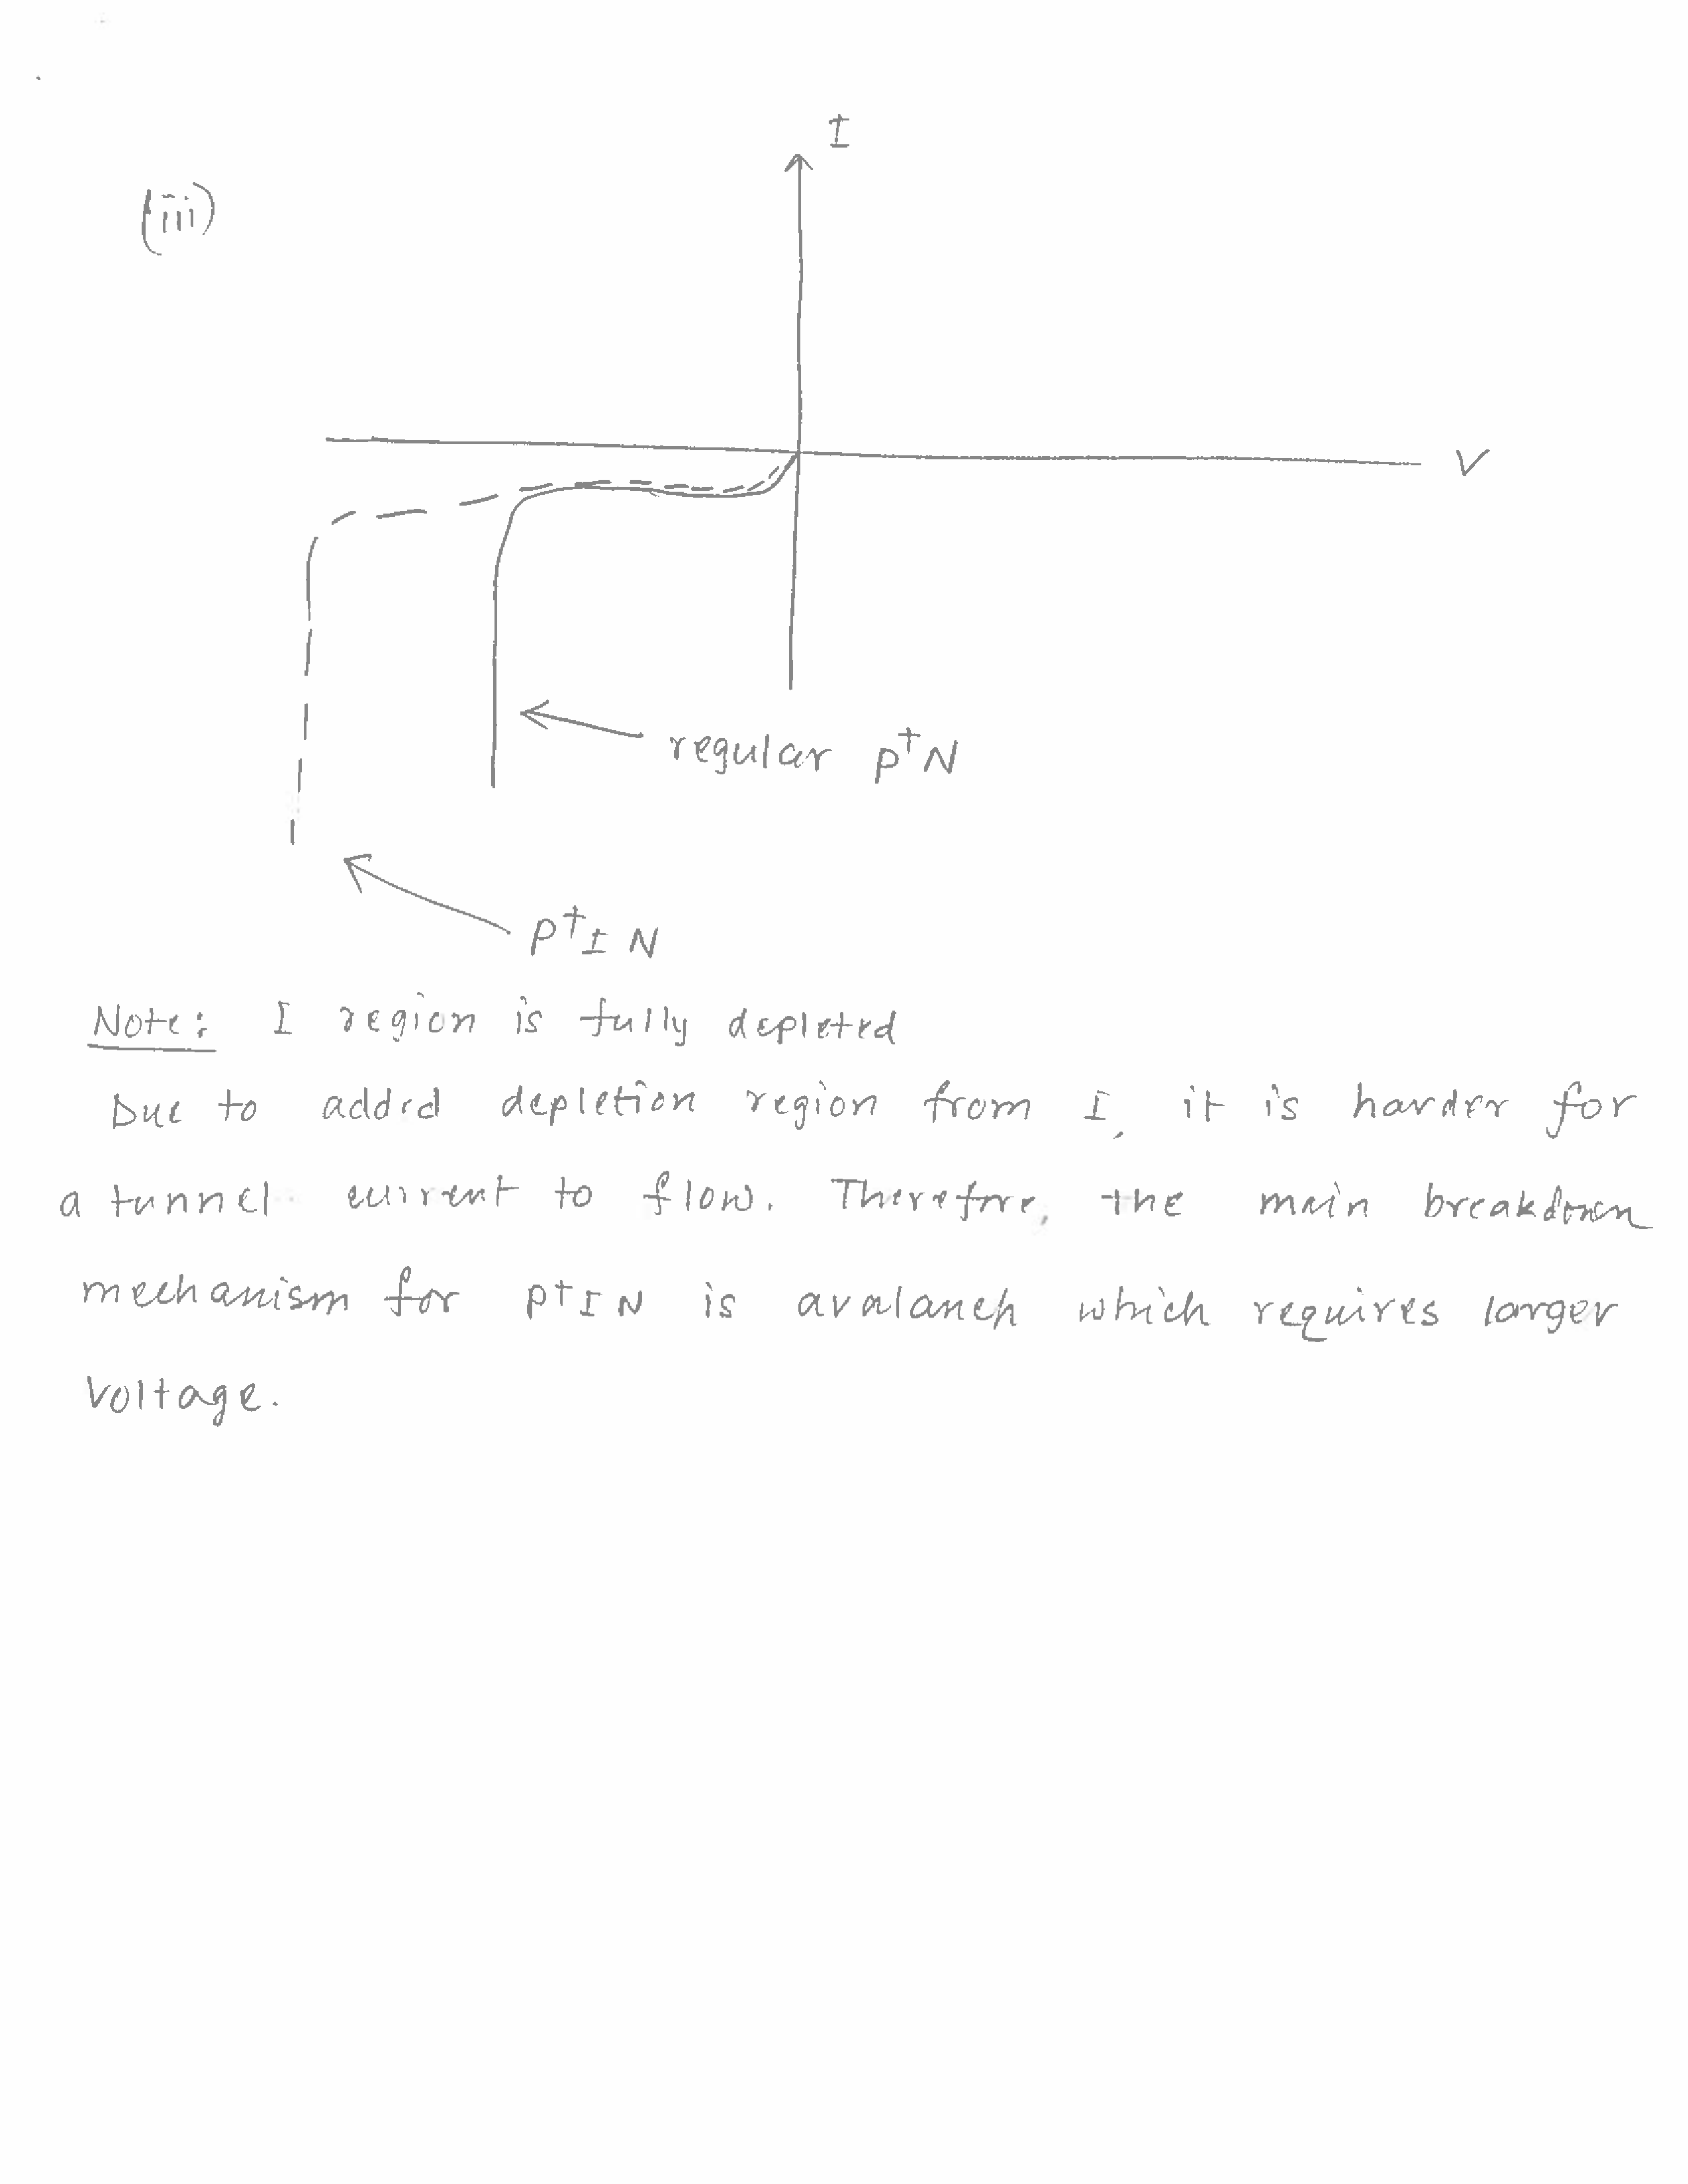 I
(iii)
V
regular p⁺N
P⁺I N
Note: I region is fully depleted
Due to added depletion region from I, it is harder for
a tunnel current to flow. Therefore, the main breakdown
mechanism for p⁺IN is avalanch which requires larger
voltage.